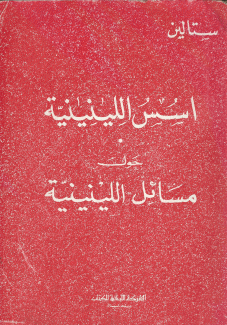 ستالين
اسس اللينينية
حول
مسائل اللينينية